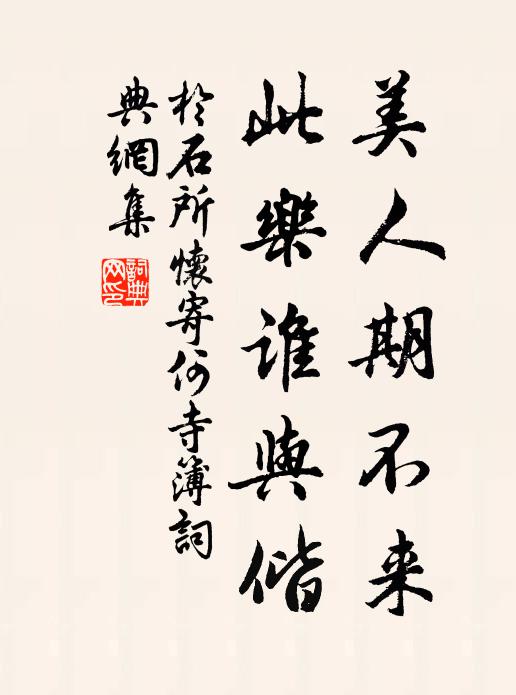 美人期不来
此樂誰與偕
於石所懷寄何寺簿詞
典網集
詞典網印